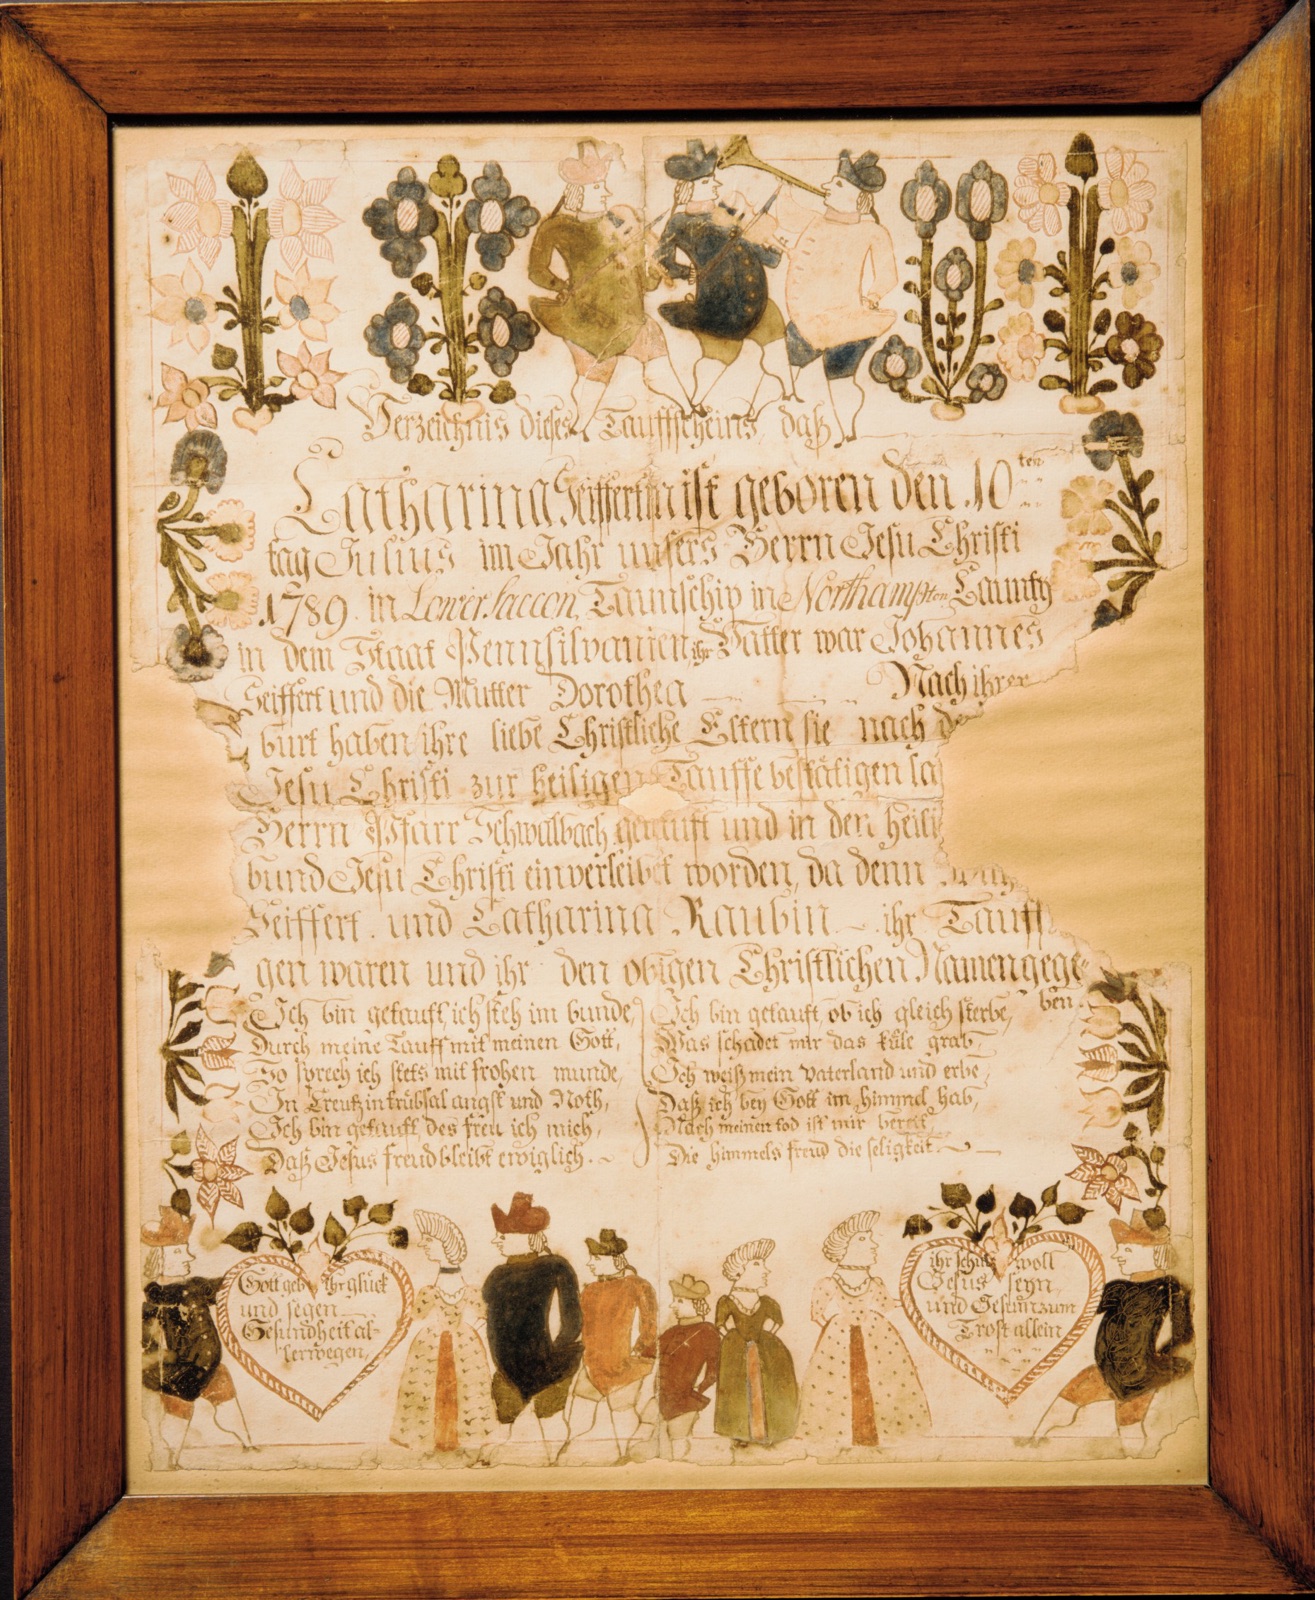 Verzeichnis dieses Taufffcheins, daß
Catharina Seiffertin ist geboren den 10ten
tag Julius im Jahr unsers Herrn Jesu Christi
1789. in Lower Saccon, Taunschip in Northampton Caunty
in dem Staat Pennsilvanien, ihr Vatter war Johannes
Seiffert und die Mutter Dorothea Nach ihrer
burt haben ihre liebe Christliche Eltern sie nach
Jesu Christi zur heiligen Tauffe bestätigen
Herrn Pfarr Schwalbach getauft und in den
bund Jesu Christi einverleibet worden, da denn
Seiffert. und Catharina Raubin ihr Tauff
gen waren und ihr den obigen Christlichen Namen gege-
ben.
Ich bin getauft, ich steh im bunde,
Durch meine Tauff mit meinen Gott,
So sprech ich stets mit frohen munde,
In Creutz in trübsal angst und Noth,
Ich bin getauft des freu ich mich,
Daß Jesus freud bleibt ewiglich.
Ich bin getauft, ob ich gleich sterbe,
Was schadet mir das küle grab,
Ich weiß mein vaterland und erbe,
Daß ich bey Gott im himmel hab,
Nach meinen tod ist mir bereit
Die himmels freud die seligkeit.
Gott geb ihr glück
und segen
Gesundheit al-
lerwegen,
ihr schutz woll
Jesus seyn
und Gesum zum
Trost allein